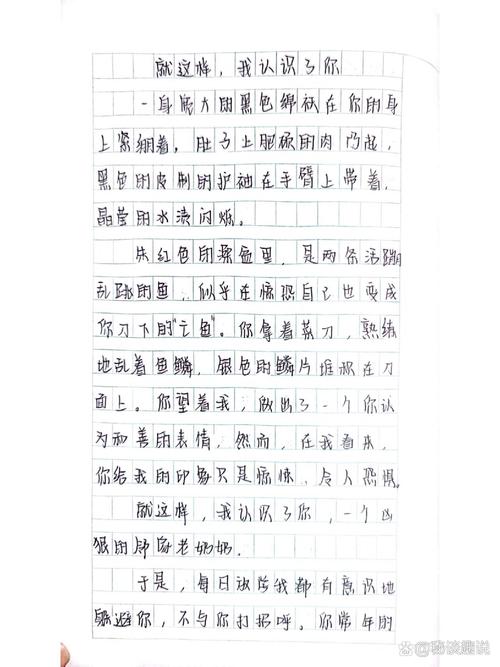 就这样，我认识了你
一身庞大的黑色绵袄在你的身
上紧绷着，肚子上肥硕的肉凸起，
黑色的皮制的护袖在手臂上带着，
晶莹的水渍闪烁。
朱红色的盆里，是两条活蹦
乱跳的鱼，似乎在惊恐自己也变成
你刀下的"亡鱼"。你拿着刀，熟练
地乱着鱼鳞，银色的鳞片堆积在刀
面上。你望着我，做出了一个你认
为和善的表情，然而，在我看来，
你给我的印象只是惊悚、令人恐惧。
就这样，我认识了你，一个凶
狠的邻家老奶奶。
于是，每日我都有意识地
躲避你，不与你打招呼。你常年的
@秘谈趣说